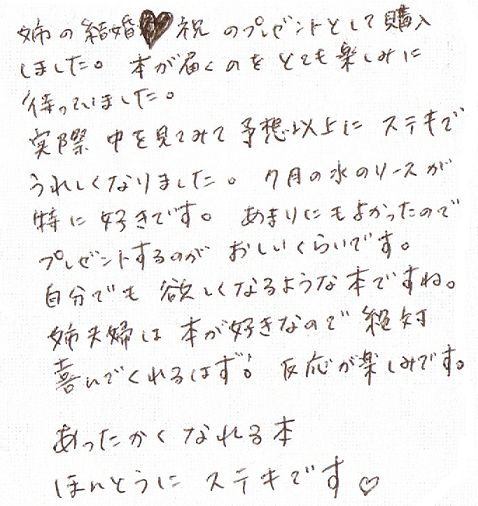 姉の結婚♥祝のプレゼントとして購入
しました。本が届くのをとても楽しみに
待っていました。
実際中を見てみて予想以上にステキで
うれしくなりました。7月の水のリースが
特に好きです。あまりにもよかったので
プレゼントするのがおしいくらいです。
自分でも欲しくなるような本ですね。
姉夫婦は本が好きなので絶対
喜んでくれるはず。反応が楽しみです。
あったかくなれる本
ほんとうにステキです♡